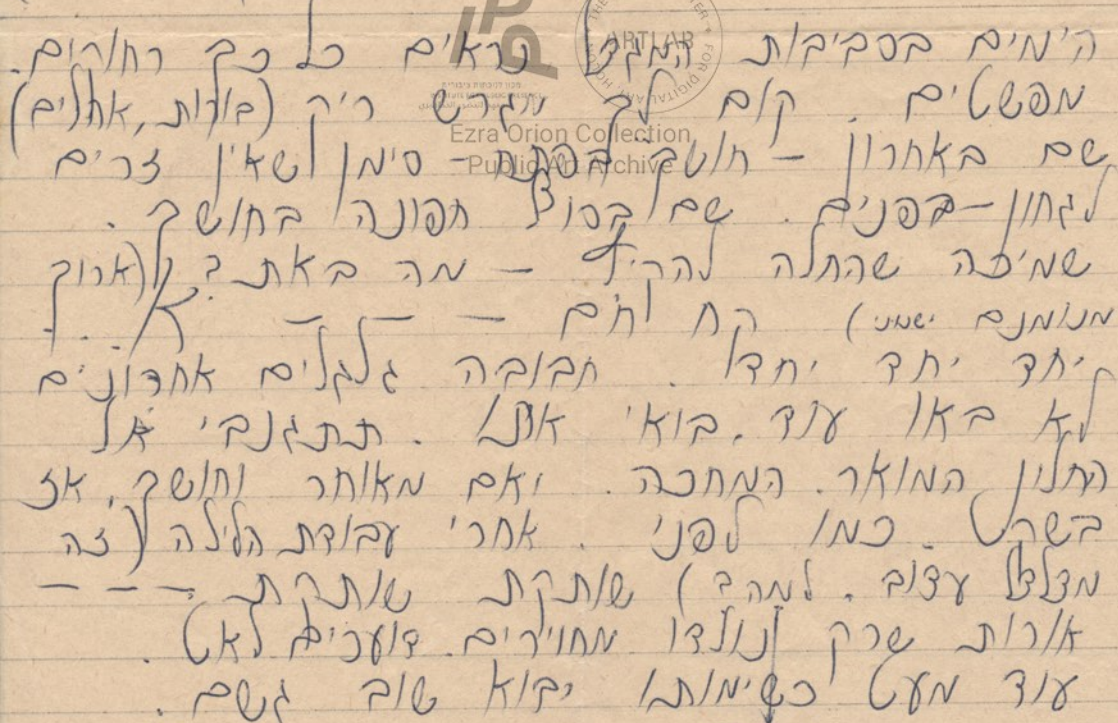 הימים בסביבות נראים כל כך רחוקים.
מפשטים. קום לך מגרש ריק (בולות, אחלים)
שם באחרון – חושך – סימן שאין זרים
לגחון – בפנים. שם בסוף תפונה בחושך.
שמיכה שהחלה – מה באת? (ארוך
מנומנם ישמיני) קח חם – – –
יחד יחד יחדו. חבובה גלגלים אחרונים
לא באו עוד. בואי. תתגנבי אל
החלון המואר. המחכה. ואם מאוחר וחושך, אז
בשקט כמו לפני. אחרי עבודת הלילה (זה
מצלצל עצוב. למה?) שותקת שותקת – – –
אורות שרק נולדו מחוירים. דוערים לאט.
עוד מעט יבוא שוב גשם.
ARTLAB
FOR DIGITAL ART, HOLON
Ezra Orion Collection
Public Art Archive